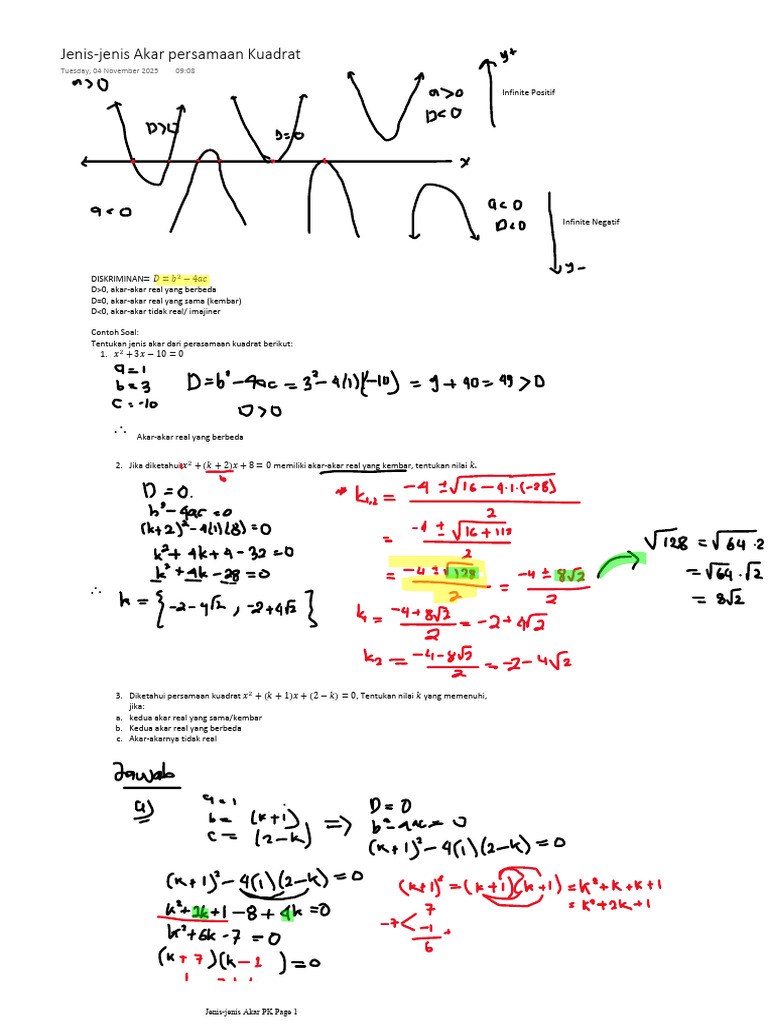 Jenis-jenis Akar persamaan Kuadrat
Tuesday, 04 November 2025 09:08
a>0
D>0
D=0
a>0
D<0
y+
Infinite Positif
x
a<0
a<0
D<0
Infinite Negatif
y-
DISKRIMINAN= D = b² − 4ac
D>0, akar-akar real yang berbeda
D=0, akar-akar real yang sama (kembar)
D<0, akar-akar tidak real/ imajiner
Contoh Soal:
Tentukan jenis akar dari perasamaan kuadrat berikut:
1. x² + 3x − 10 = 0
a=1
b=3
c=-10
D=b²-4ac = 3²-4(1)(-10) = 9+40 = 49 > 0
D>0
∴ Akar-akar real yang berbeda
2. Jika diketahui x² + (k + 2)x + 8 = 0 memiliki akar-akar real yang kembar, tentukan nilai k.
b
D = 0.
b²-4ac=0
(k+2)²-4(1)(8)=0
k²+4k+4-32=0
k²+4k-28=0
∴ k = {-2-4√2, -2+4√2}
* k1,2 = (-4 ± √(16-4·1·(-28)))/2
= (-4 ± √(16+112))/2
= (-4 ± √128)/2 = (-4 ± 8√2)/2
k1 = (-4+8√2)/2 = -2+4√2
k2 = (-4-8√2)/2 = -2-4√2
√128 = √64·2
= √64·√2
= 8√2
3. Diketahui persamaan kuadrat x² + (k + 1)x + (2 − k) = 0, Tentukan nilai k yang memenuhi,
jika:
a. kedua akar real yang sama/kembar
b. Kedua akar real yang berbeda
c. Akar-akarnya tidak real
Jawab
a)
a=1
b= (k+1)
c= (2-k)
=>
D=0
b²-4ac=0
(k+1)²-4(1)(2-k)=0
(k+1)²-4(1)(2-k)=0
k²+2k+1-8+4k=0
k²+6k-7=0
(k+7)(k-1)=0
(k+1)²=(k+1)(k+1)=k²+k+k+1
=k²+2k+1
-7 < 7
-1 +
6
Jenis-jenis Akar PK Page 1